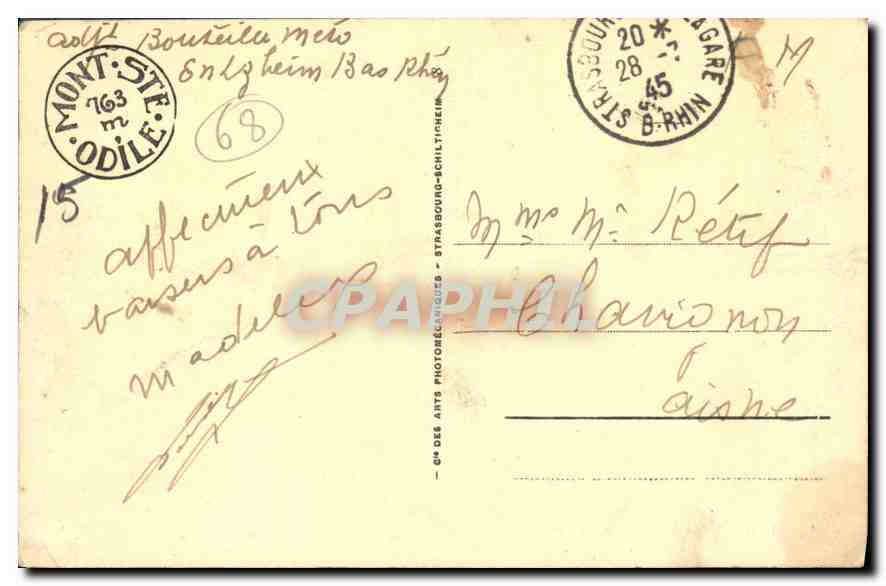 adjt Bouteiller Méto
Entzheim Bas Rhin
MONT · STE · ODILE ·
763
m
68
15
affectueux
baisers à tous
Madeleine
CPAPHIL
Cie DES ARTS PHOTOMÉCANIQUES - STRASBOURG-SCHILTIGHEIM
STRASBOURG GARE
20 *
28
45
B. RHIN
M
Mme Mr Rétif
Chavignon
Aisne